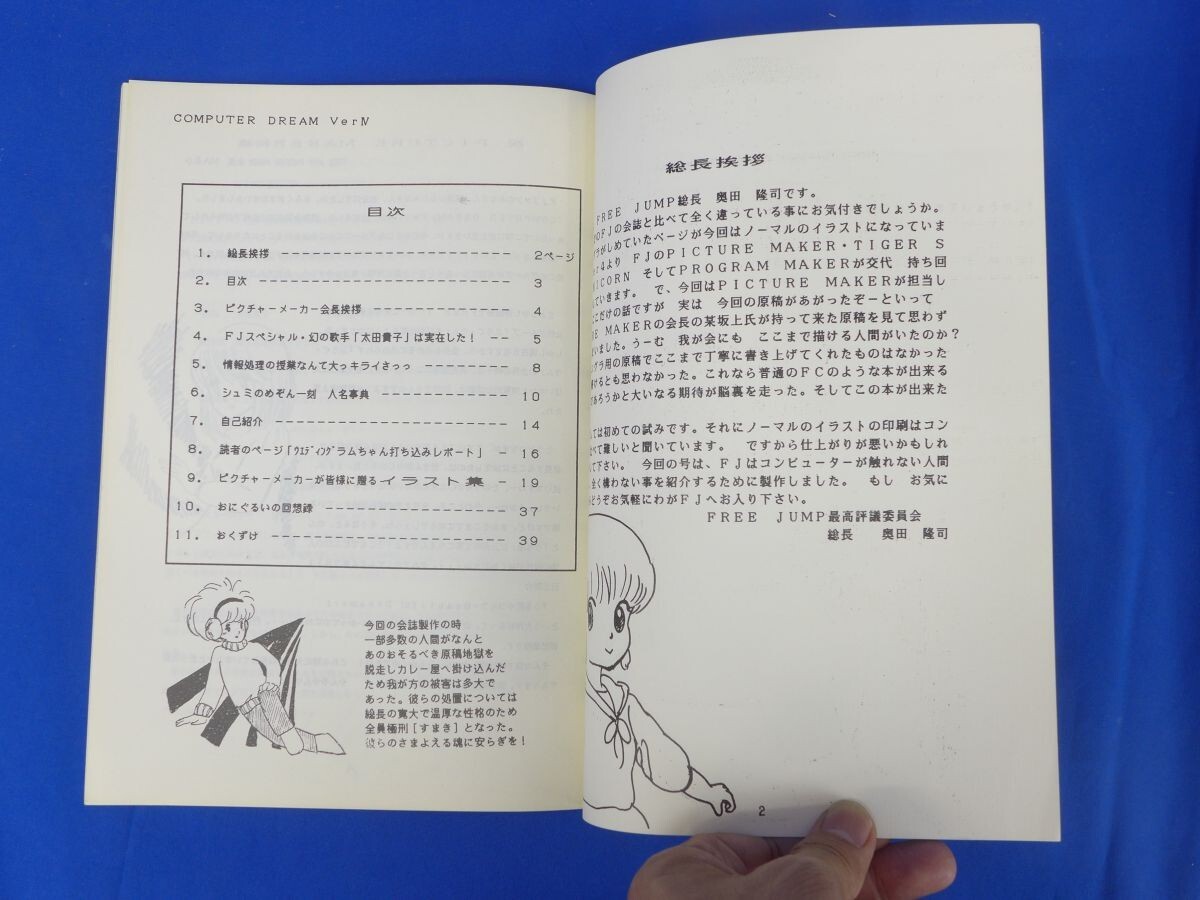 COMPUTER DREAM VerⅣ
目次
1. 総長挨拶 ------------------------ 2ページ
2. 目次 --------------------------- 3
3. ピクチャーメーカー会長挨拶 -------------- 4
4. FJスペシャル・幻の歌手「太田貴子」は実在した! -- 5
5. 情報処理の授業なんて大っキライさっっ --------- 8
6. シュミのめぞん一刻 人名事典 ------------- 10
7. 自己紹介 ------------------------ 14
8. 読者のページ「ウエディングラムちゃん打ち込みレポート」 - 16
9. ピクチャーメーカーが皆様に贈るイラスト集 - 19
10. おにぐるいの回想録 ------------------- 37
11. おくずけ ------------------------ 39
今回の会誌製作の時
一部多数の人間がなんと
あのおそるべき原稿地獄を
脱走しカレー屋へ掛け込んだ
ため我が方の被害は多大で
あった。彼らの処置については
総長の寛大で温厚な性格のため
全員極刑[すまき]となった。
彼らのさまよえる魂に安らぎを!
総長挨拶
FREE JUMP総長 奥田 隆司です。
のFJの会誌と比べて全く違っている事にお気付きでしょうか。
がしめていたページが今回はノーマルのイラストになっていま
r4より FJのPICTURE MAKER・TIGER S
NICORN そしてPROGRAM MAKERが交代 持ち回
していきます。 で、今回はPICTURE MAKERが担当し
こだけの話ですが 実は 今回の原稿があがったぞーといって
E MAKERの会長の某坂上氏が持って来た原稿を見て思わず
いました。うーむ 我が会にも ここまで描ける人間がいたのか?
ゲラ用の原稿でここまで丁寧に書き上げてくれたものはなかった
けるとも思わなかった。これなら普通のFCのような本が出来る
であろうかと大いなる期待が脳裏を走った。そしてこの本が出来た
しては初めての試みです。それにノーマルのイラストの印刷はコン
べて難しいと聞いています。 ですから仕上がりが悪いかもしれ
して下さい。 今回の号は、FJはコンピューターが触れない人間
全く構わない事を紹介するために製作しました。 もし お気に
どうぞお気軽にわがFJへお入り下さい。
FREE JUMP最高評議委員会
総長 奥田 隆司
2